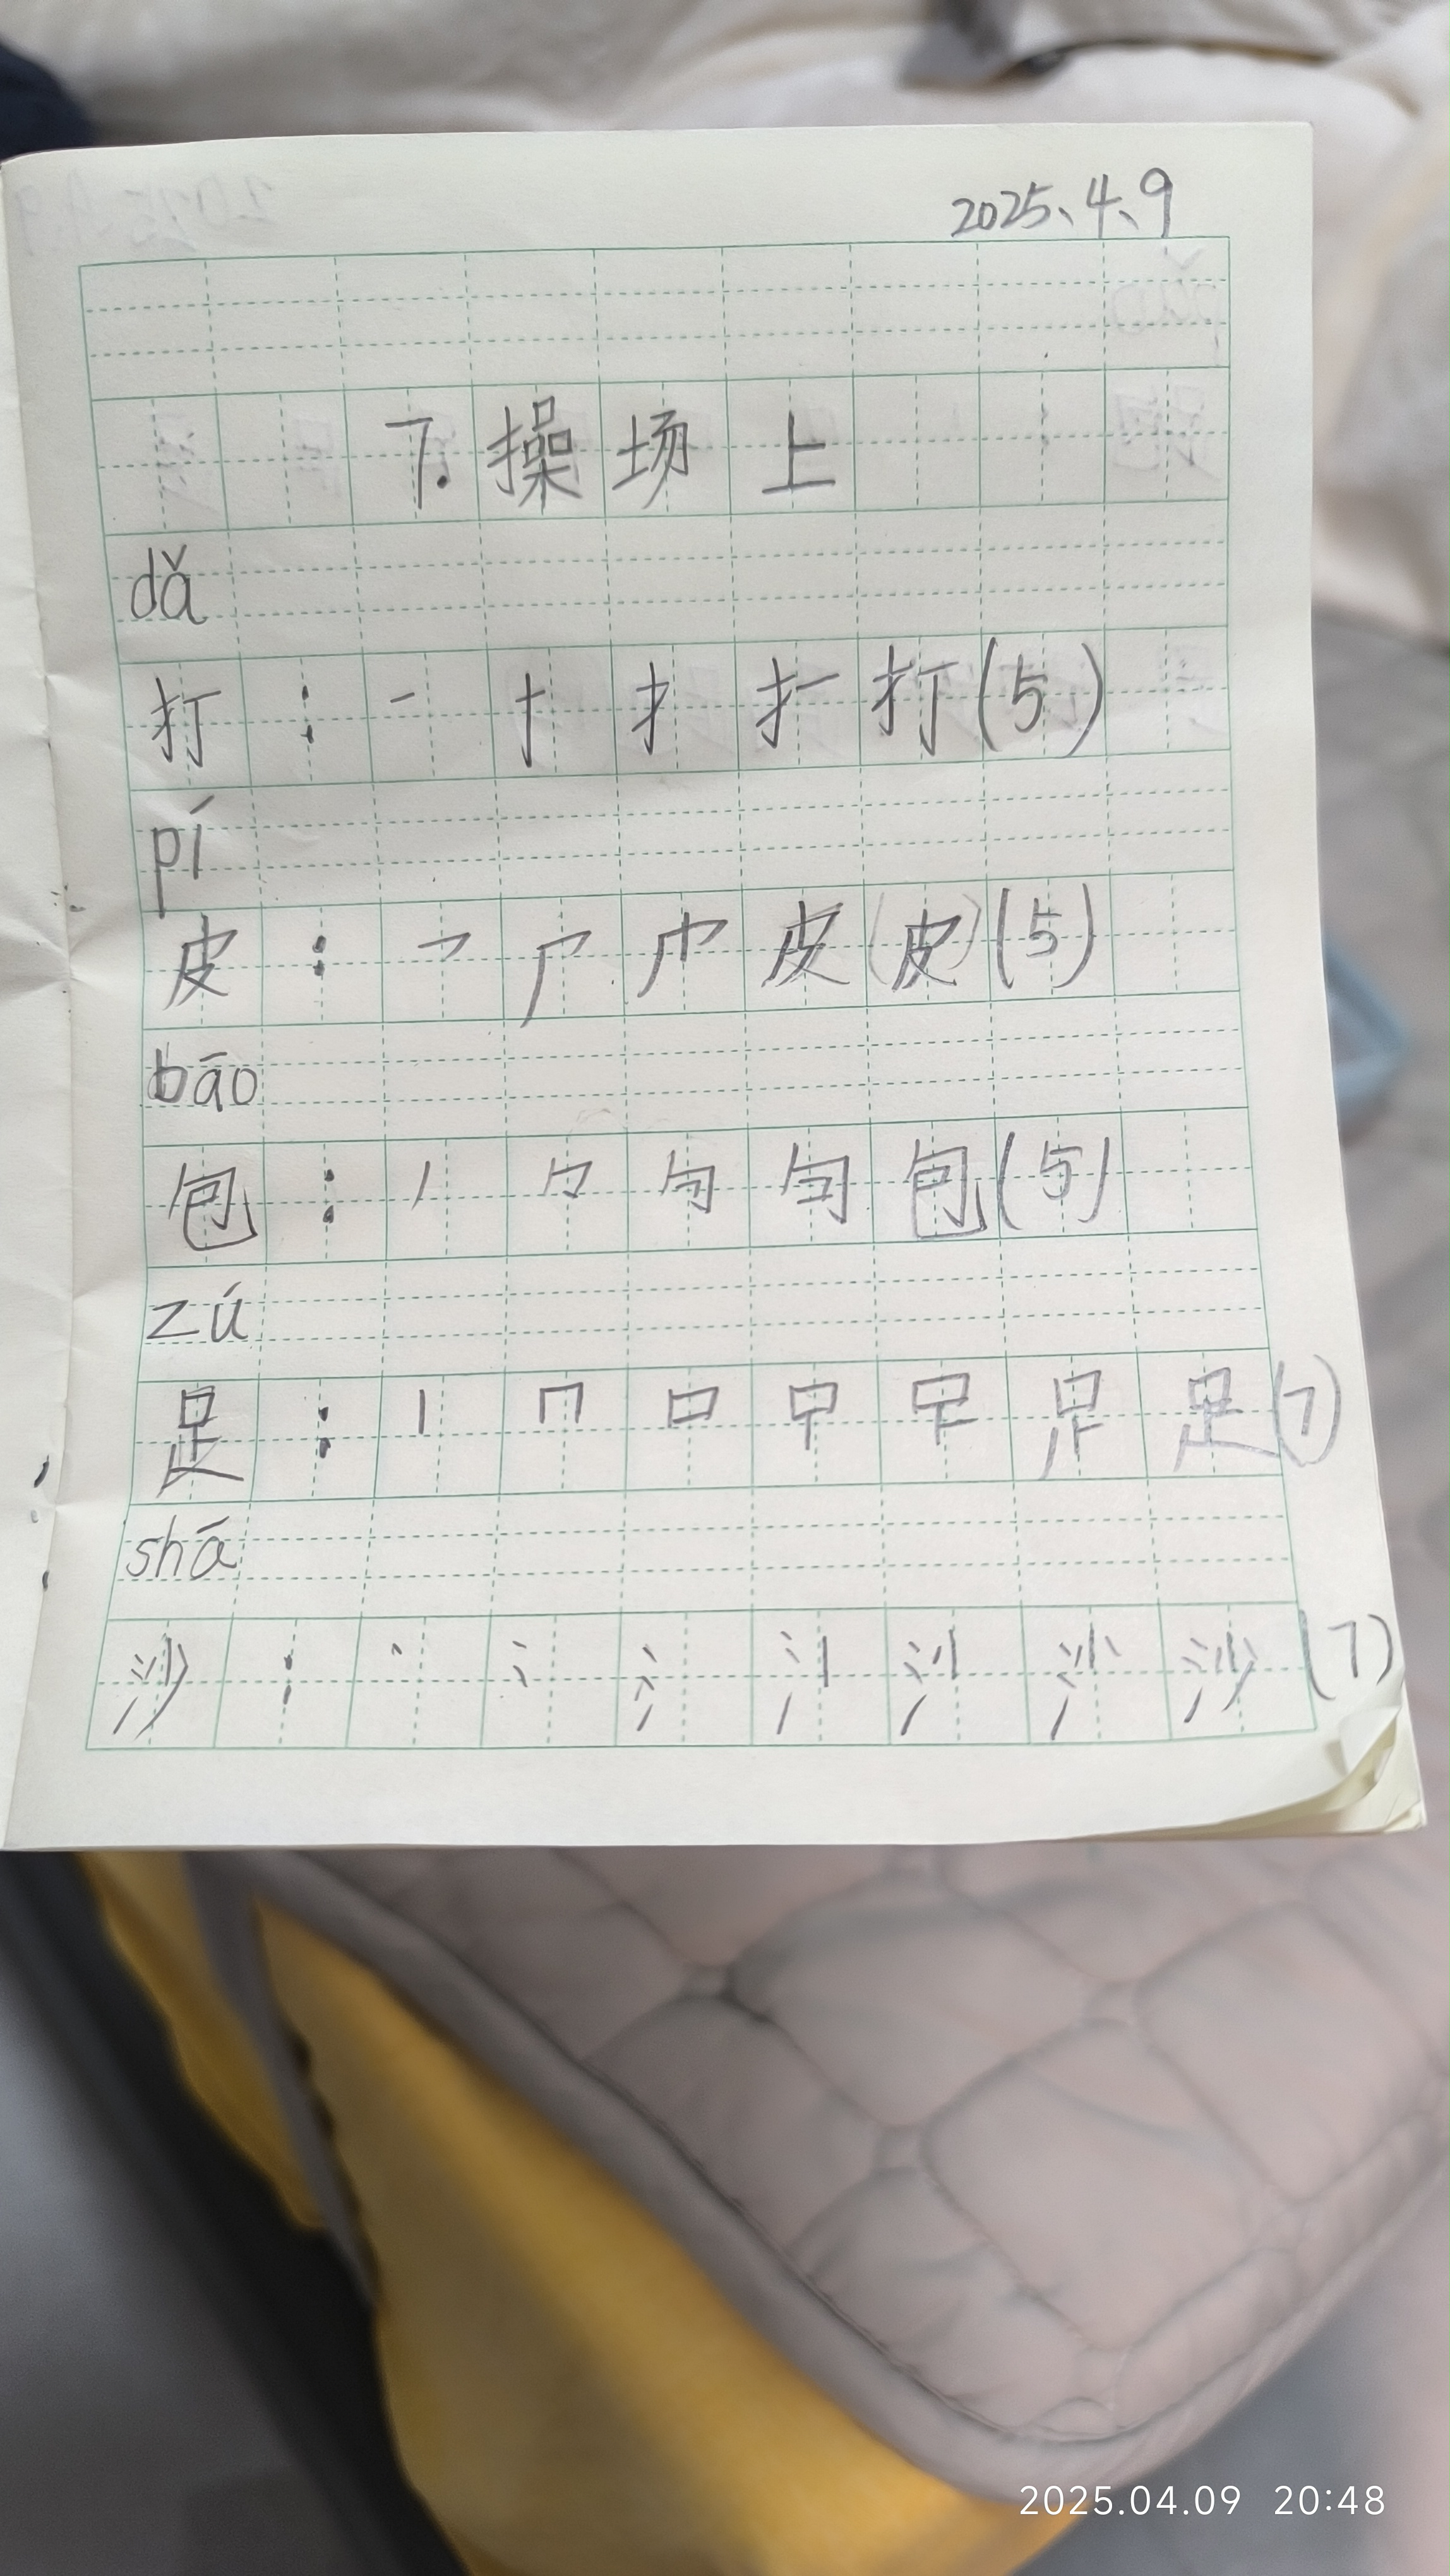 2025、4、9
7.操场上
dǎ
打：一 十 扌 扌一 打(5)
pí
皮：皮 皮(5)
bāo
包：丿 勹 包(5)
zú
足：丨 冂 口 足(7)
shā
沙：丶 冫 氵 沙(7)
2025.04.09 20:48